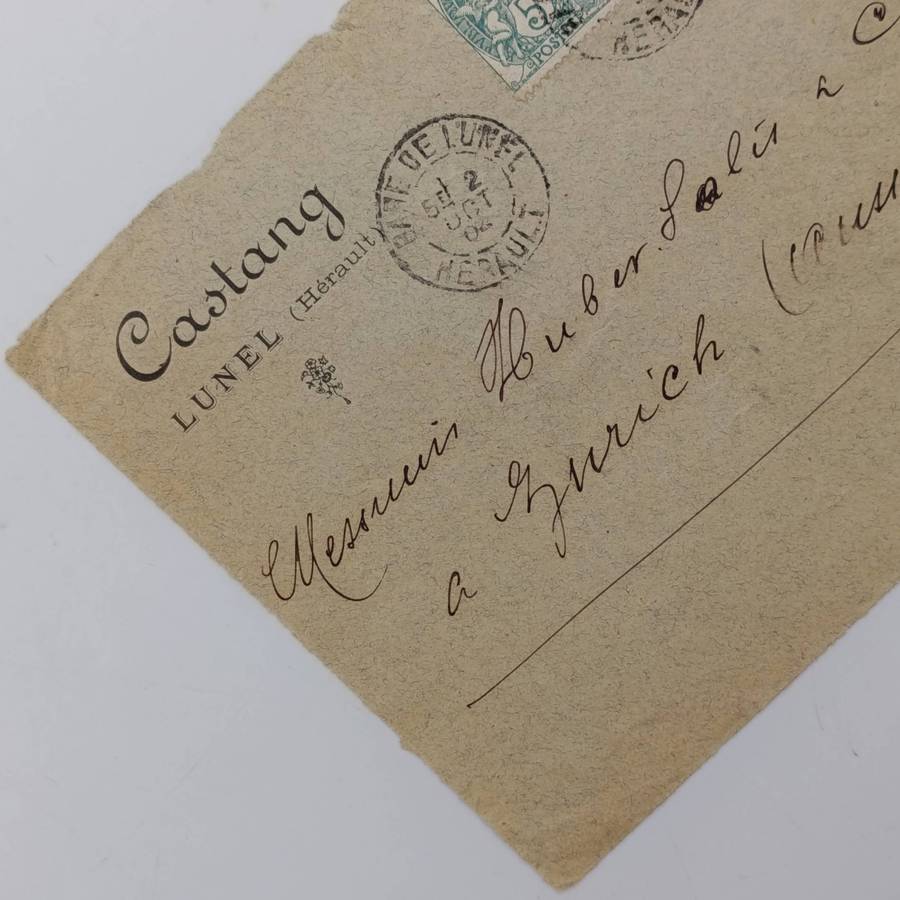 5
POSTES
HERAULT
GARE DE LUNEL
5E 2
OCT
02
HERAULT
Castang
LUNEL (Hérault)
Messieurs Huber. Solis &
a Zurich